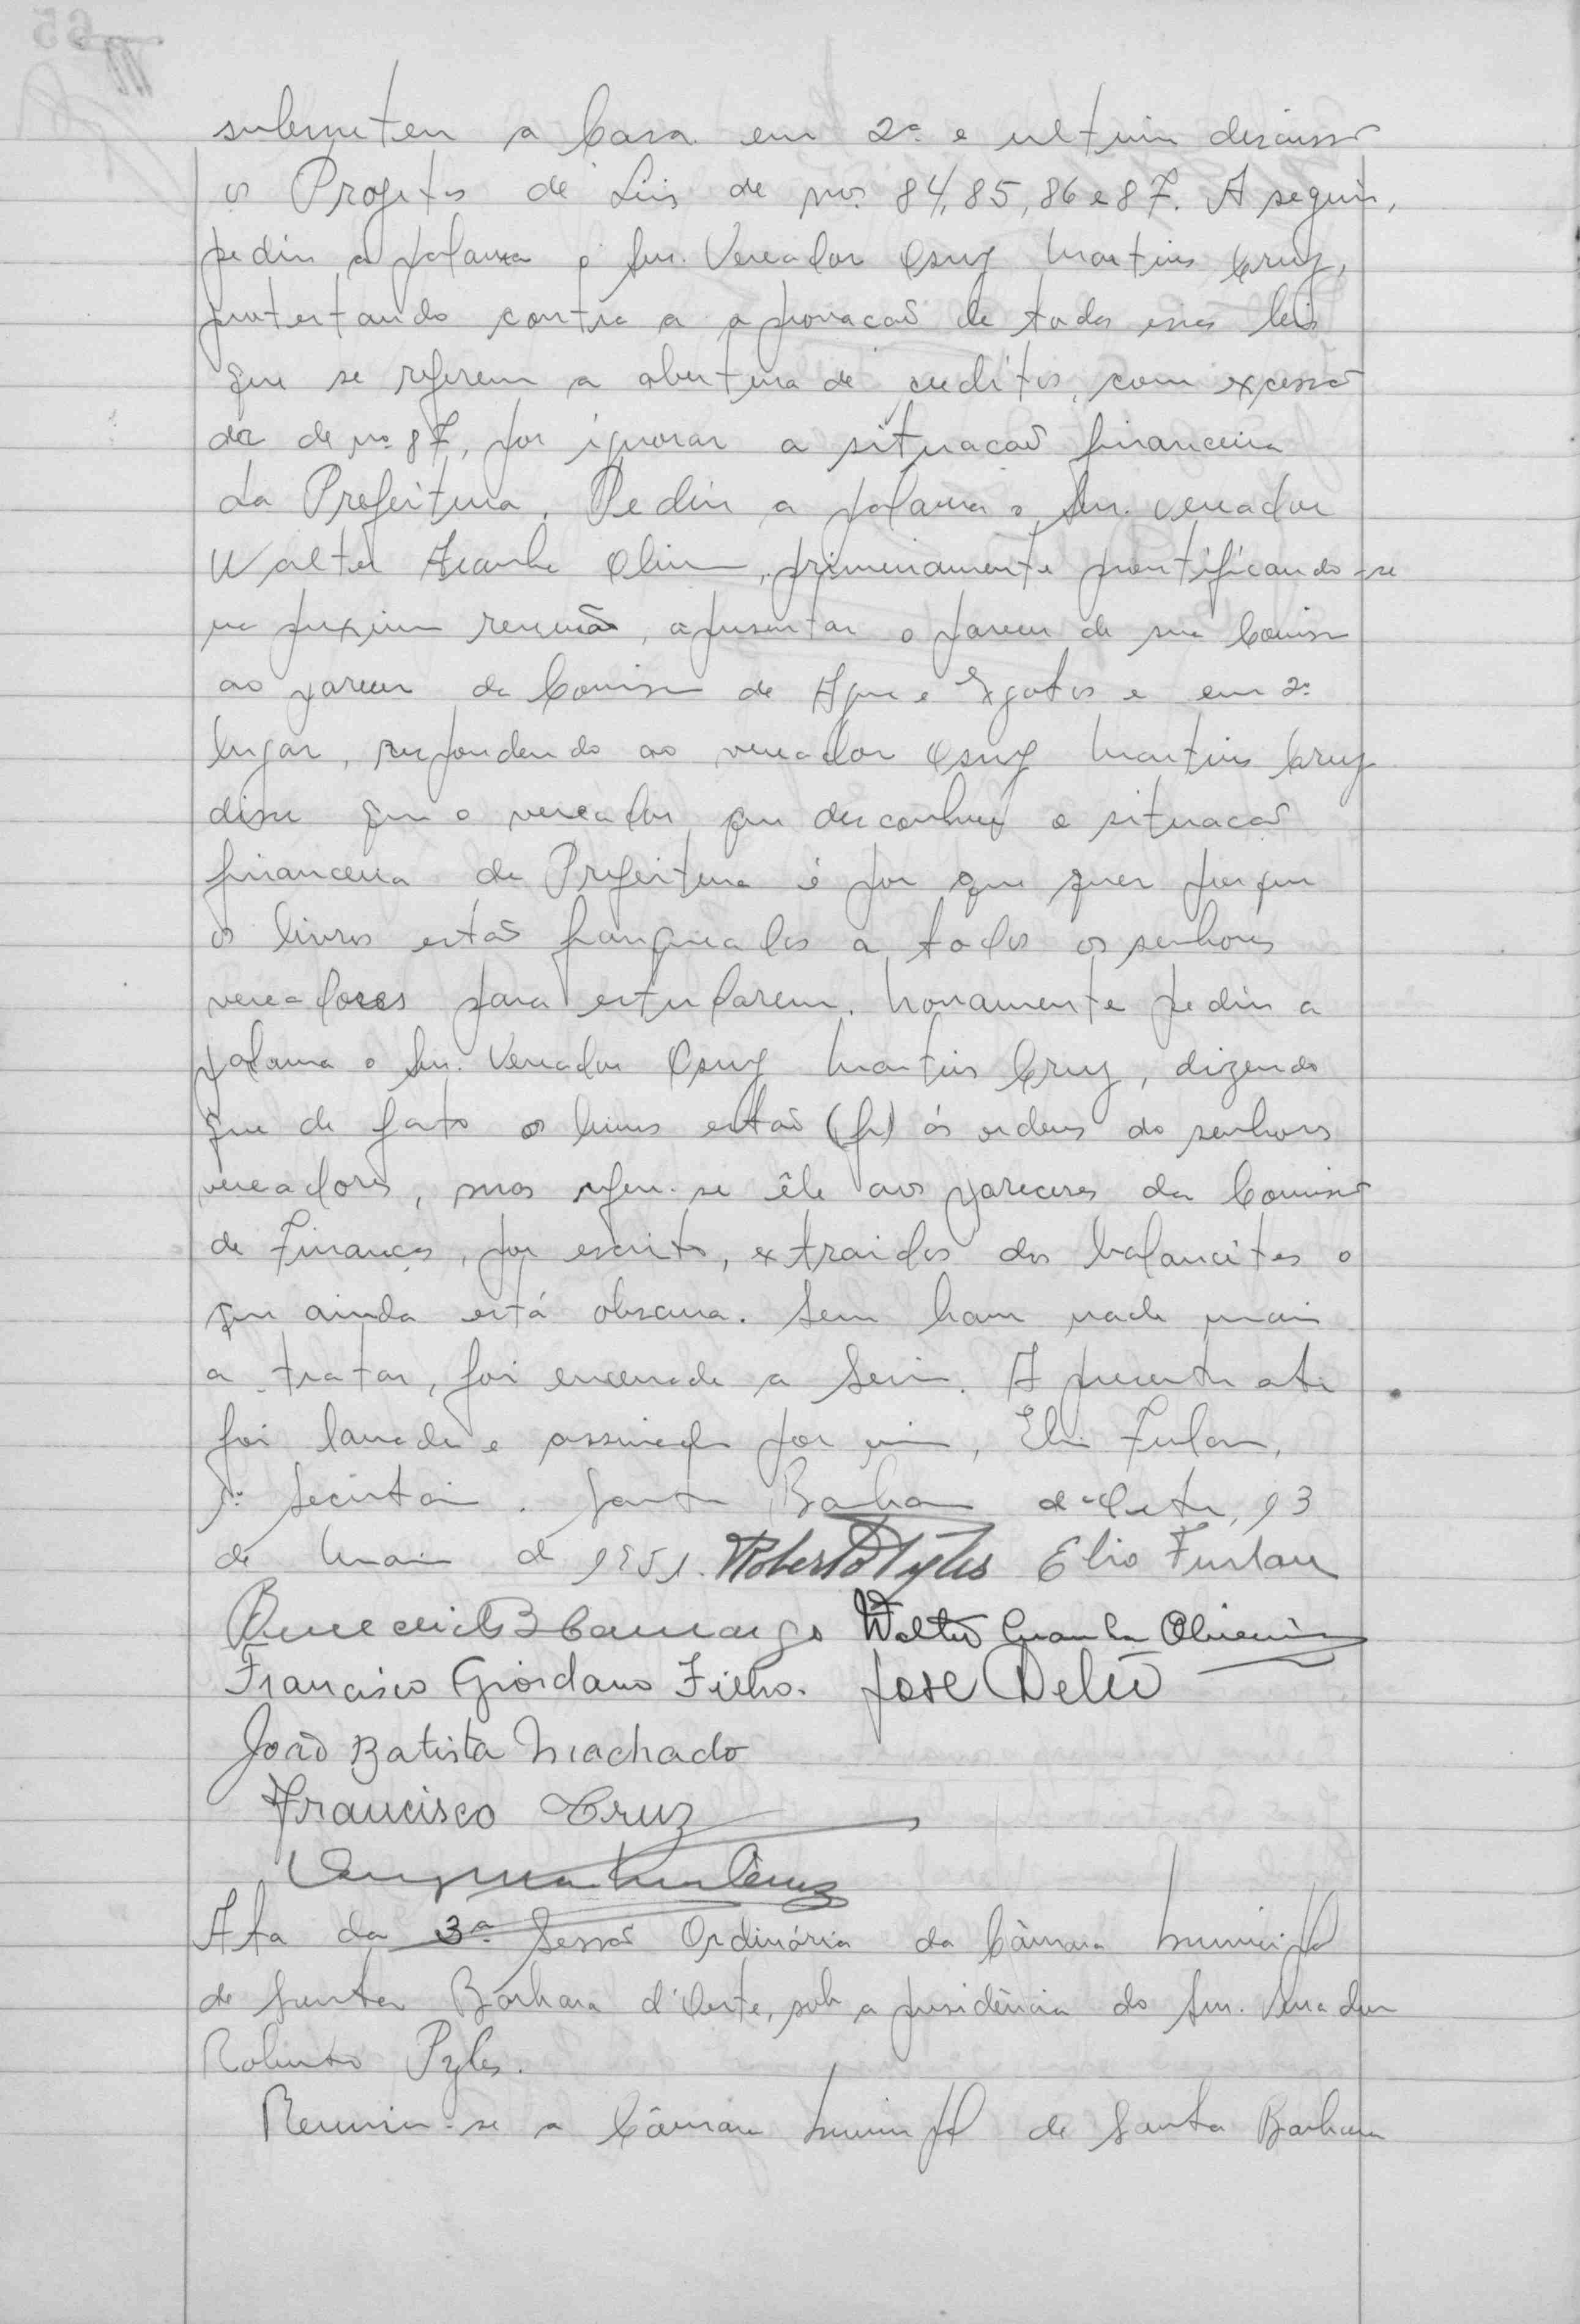 submeteu a Casa em 2ª e ultima discussão
os Projetos de Leis de nos. 84, 85, 86 e 87. A seguir,
pediu a palavra o Snr. Vereador Osny Martins Cruz,
protestando contra a aprovacaõ de todas essas leis
que se referem a abertura de creditos, com excessão
da de nº 87, por ignorar a situacaõ financeira
da Prefeitura. Pediu a palavra o Snr. vereador
Walter Aranha Oliveira, primeiramente prontificando-se
na proxima reunião, apresentar o parecer de sua Comissão
ao parecer da Comissão de Agua e Esgotos e em 2º
lugar, respondendo ao vereador Osny Martins Cruz
disse que o vereador que desconhece a situacaõ
financeira da Prefeitura é por que quer porque
os livros estaõ franqueados a todos os senhores
vereadores para estudarem. Novamente pediu a
palavra o Snr. Vereador Osny Martins Cruz, dizendo
que de fato os livros estaõ ás ordens dos senhores
vereadores, mas refere-se êle aos pareceres da Comissão
de Finanças, por escrito, extraidos dos balancetes o
que ainda está obscura. Sem haver nada mais
a tratar, foi encerrada a Sessão. A presente ata
foi lavrada e assinada por mim, Elio Furlan,
1º Secretario. Santa Barbara d'Oeste, 13
de Maio de 1951. Roberto Pyles Elio Furlan
Benedicto B Camargo Walter Aranha Oliveira
Francisco Giordano Filho. José Deleó
João Batista Machado
Francisco Cruz
Osny Martins Cruz
Ata da 3ª Sessaõ Ordinária da Câmara Municipal
de Santa Bárbara d'Oeste, sob a presidência do Snr. Vereador
Roberto Pyles.
Reuniu-se a Câmara Municipal de Santa Barbara